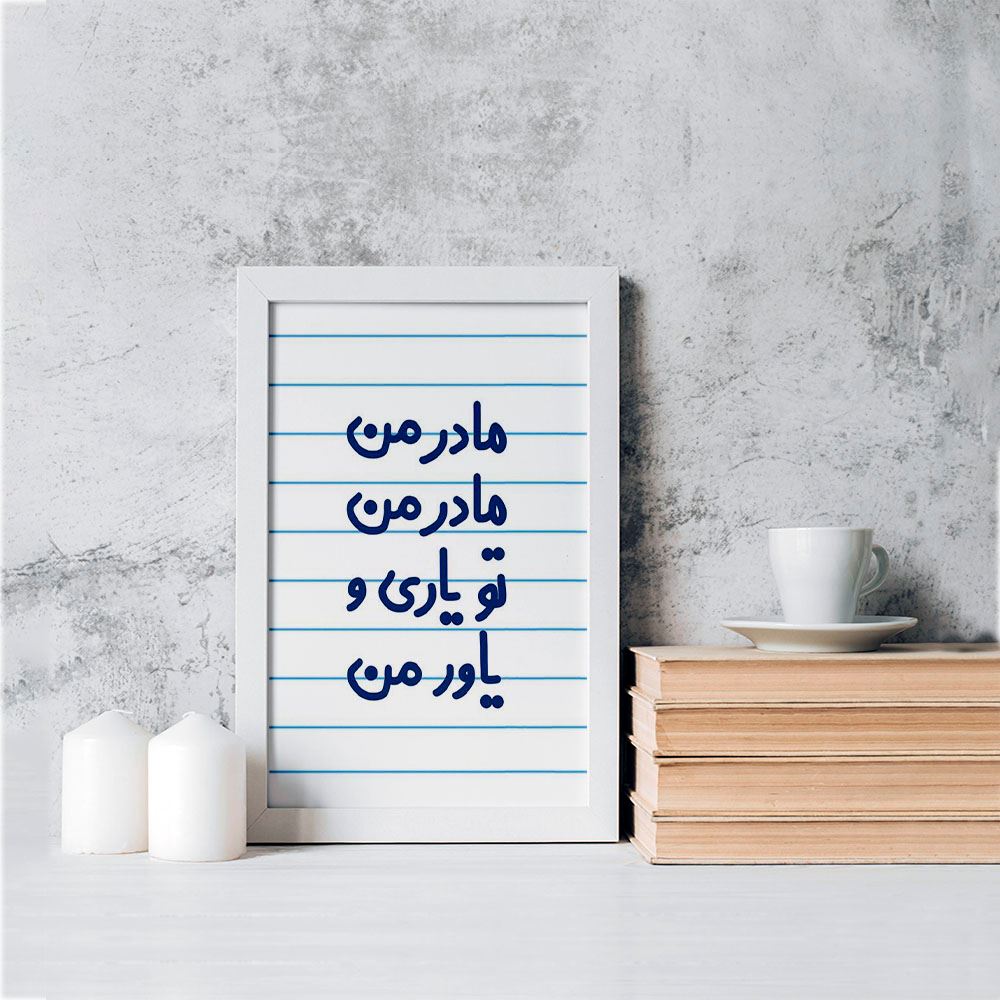 مادر من
مادر من
تو یاری و
یاور من